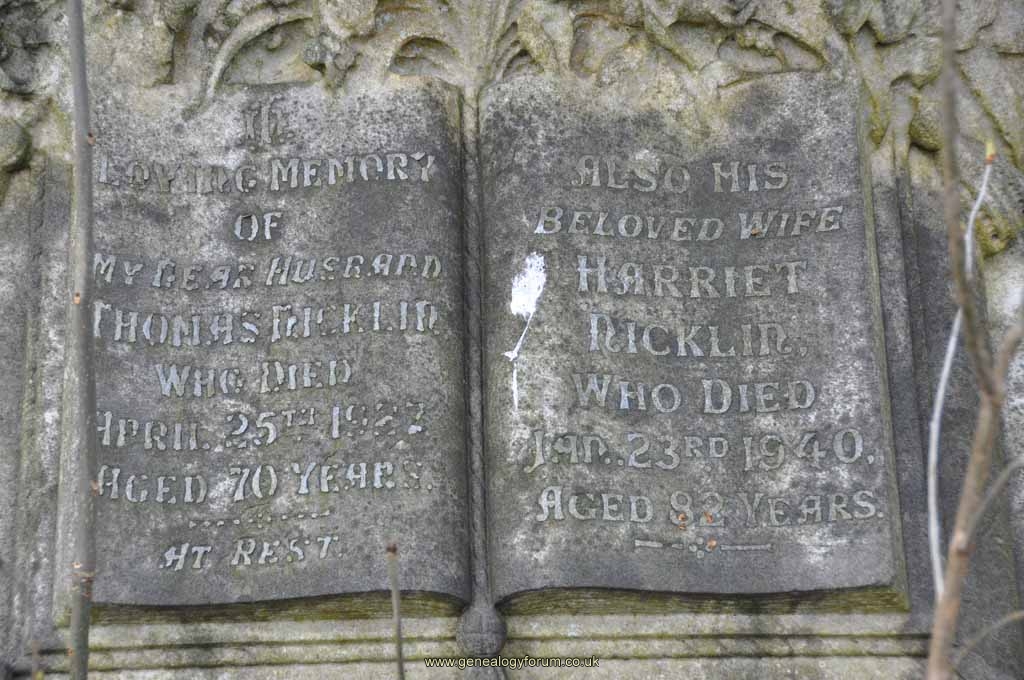 In
Loving Memory
of
My Dear Husband
Thomas Nicklin
Who Died
April 25th 1927
Aged 70 Years.
At Rest.
Also His
Beloved Wife
Harriet
Nicklin,
Who Died
Jan. 23rd 1940,
Aged 82 Years.
www.genealogyforum.co.uk